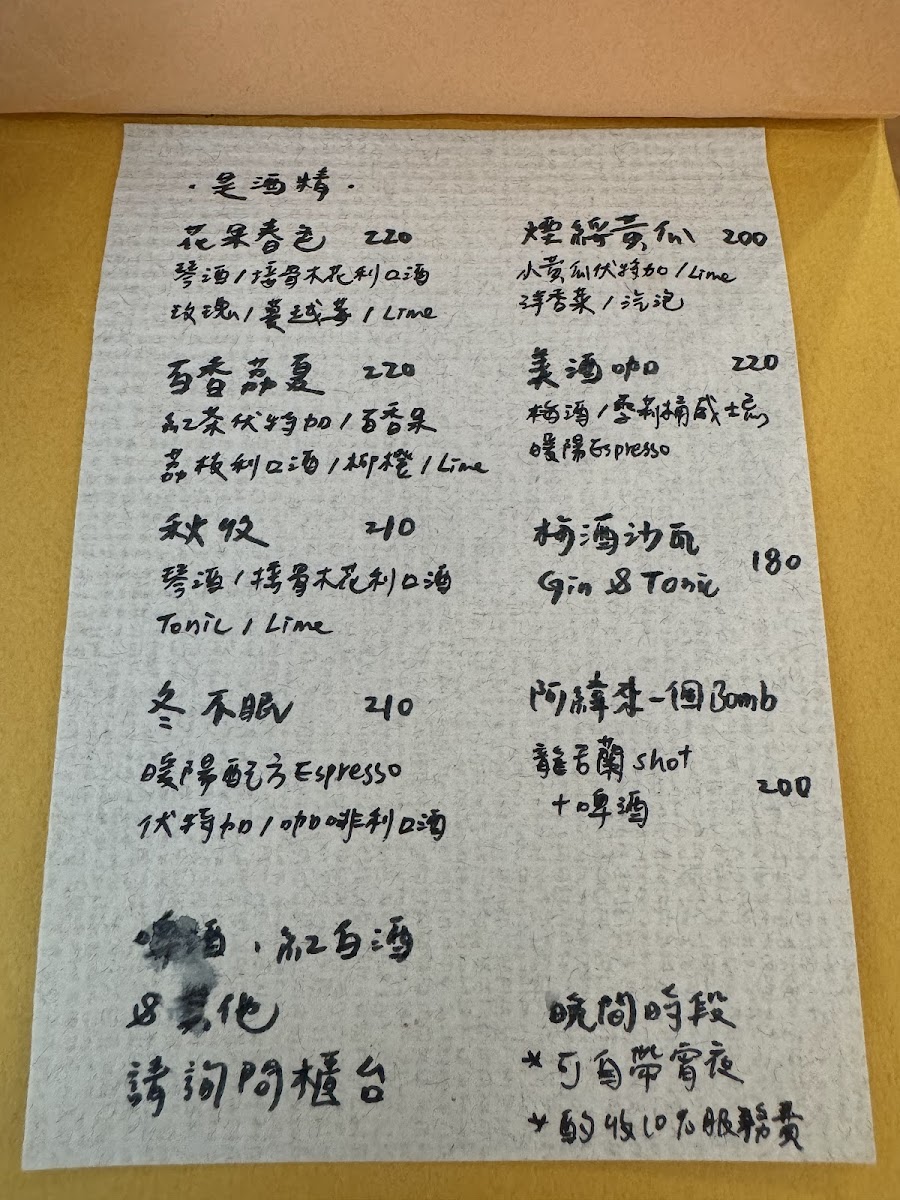 ・是酒精・
花果春色 220
琴酒/接骨木花利口酒
玫瑰/蔓越莓/Lime
百香荔夏 220
紅茶伏特加/百香果
荔枝利口酒/柳橙/Lime
秋收 210
琴酒/接骨木花利口酒
Tonic / Lime
冬不眠 210
暖陽配方Espresso
伏特加/咖啡利口酒
啤酒・紅白酒
& 其他
請詢問櫃台
煙綿黃瓜 200
小黃瓜伏特加/Lime
洋香菜/汽泡
美酒咖 220
梅酒/雪莉桶威士忌
暖陽Espresso
梅酒沙瓦
Gin & Tonic 180
阿緯來一個Bomb
龍舌蘭shot
+啤酒 200
晚間時段
*可自帶宵夜
*酌收10%服務費